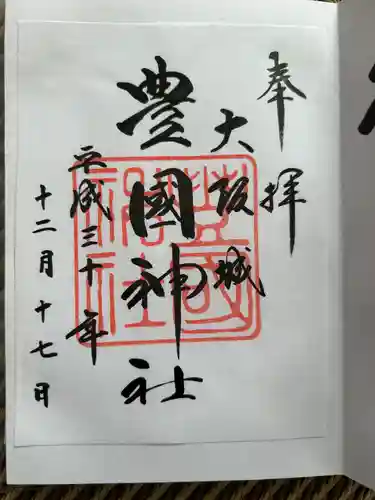 奉拝
大阪城
豊國神社
平成三十年
十二月十七日
豊國神社